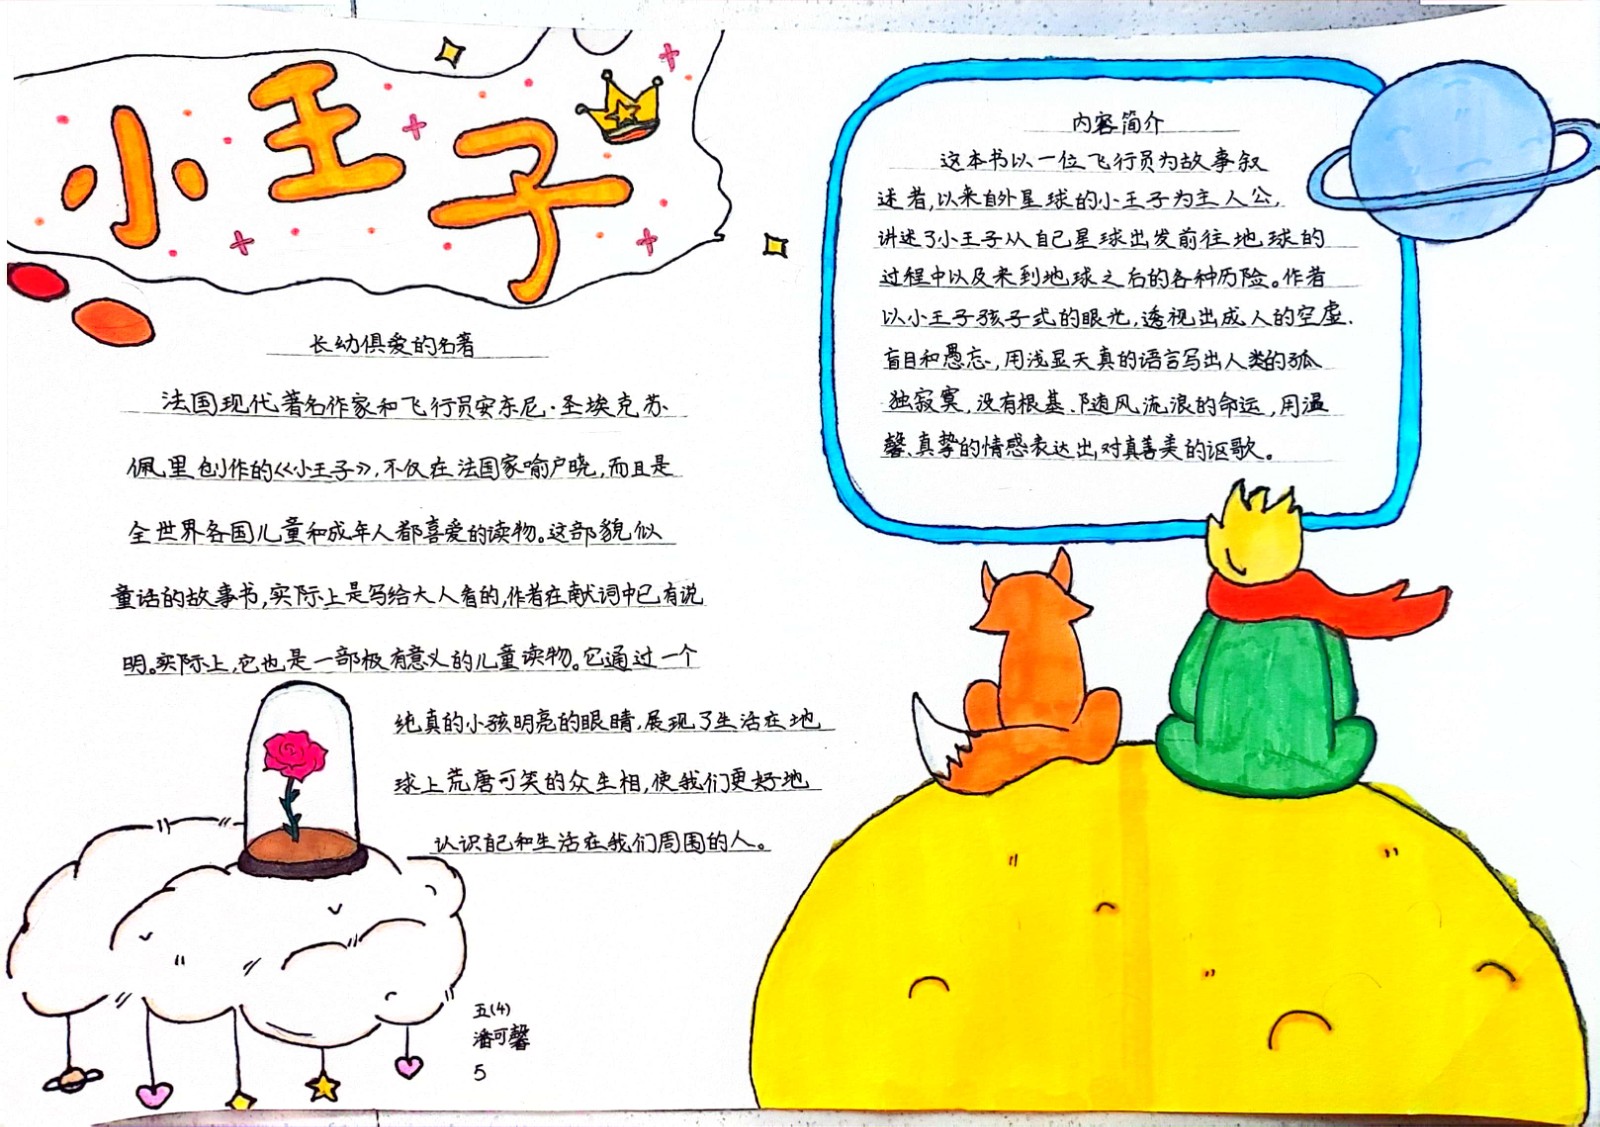 小王子
长幼俱爱的名著
法国现代著名作家和飞行员安东尼·圣埃克苏
佩里创作的《小王子》,不仅在法国家喻户晓,而且是
全世界各国儿童和成年人都喜爱的读物。这部貌似
童话的故事书,实际上是写给大人看的,作者在献词中已有说
明。实际上,它也是一部极有意义的儿童读物。它通过一个
纯真的小孩明亮的眼睛,展现了生活在地
球上荒唐可笑的众生相,使我们更好地
认识自己和生活在我们周围的人。
五(4)
潘可馨
5
内容简介
这本书以一位飞行员为故事叙
述者,以来自外星球的小王子为主人公,
讲述了小王子从自己星球出发前往地球的
过程中以及来到地球之后的各种历险。作者
以小王子孩子式的眼光,透视出成人的空虚.
盲目和愚忘,用浅显天真的语言写出人类的孤
独寂寞,没有根基、随风流浪的命运,用温
馨、真挚的情感表达出对真善美的讴歌。